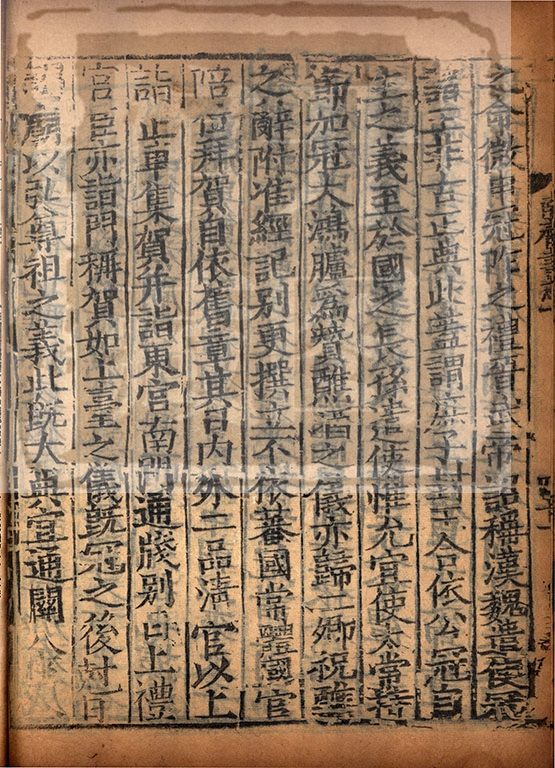 之命微申冠阼之禮晉武帝詔稱漢魏遣使冠
諸王非古正典此蓋謂庶子封王合依公冠自
主之義至於國之長孫遣使惟允宜使太常持
節加冠大鴻臚爲贊醮酒之儀亦歸二卿祝醮
之辭附准經記別更撰立不依蕃國常體國官
陪位拜賀自依舊章其日內外二品清官以上
詣止車集賀并詣東宮南門通牋別日上禮
宮臣亦詣門稱賀如上臺之儀旣冠之後尅日
謁廟以弘尊祖之義此旣大典宜通關八